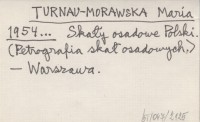 TURNAU-MORAWSKA Maria
1954... Skały osadowe Polski.
(Petrografia skał osadowych.)
— Warszawa.